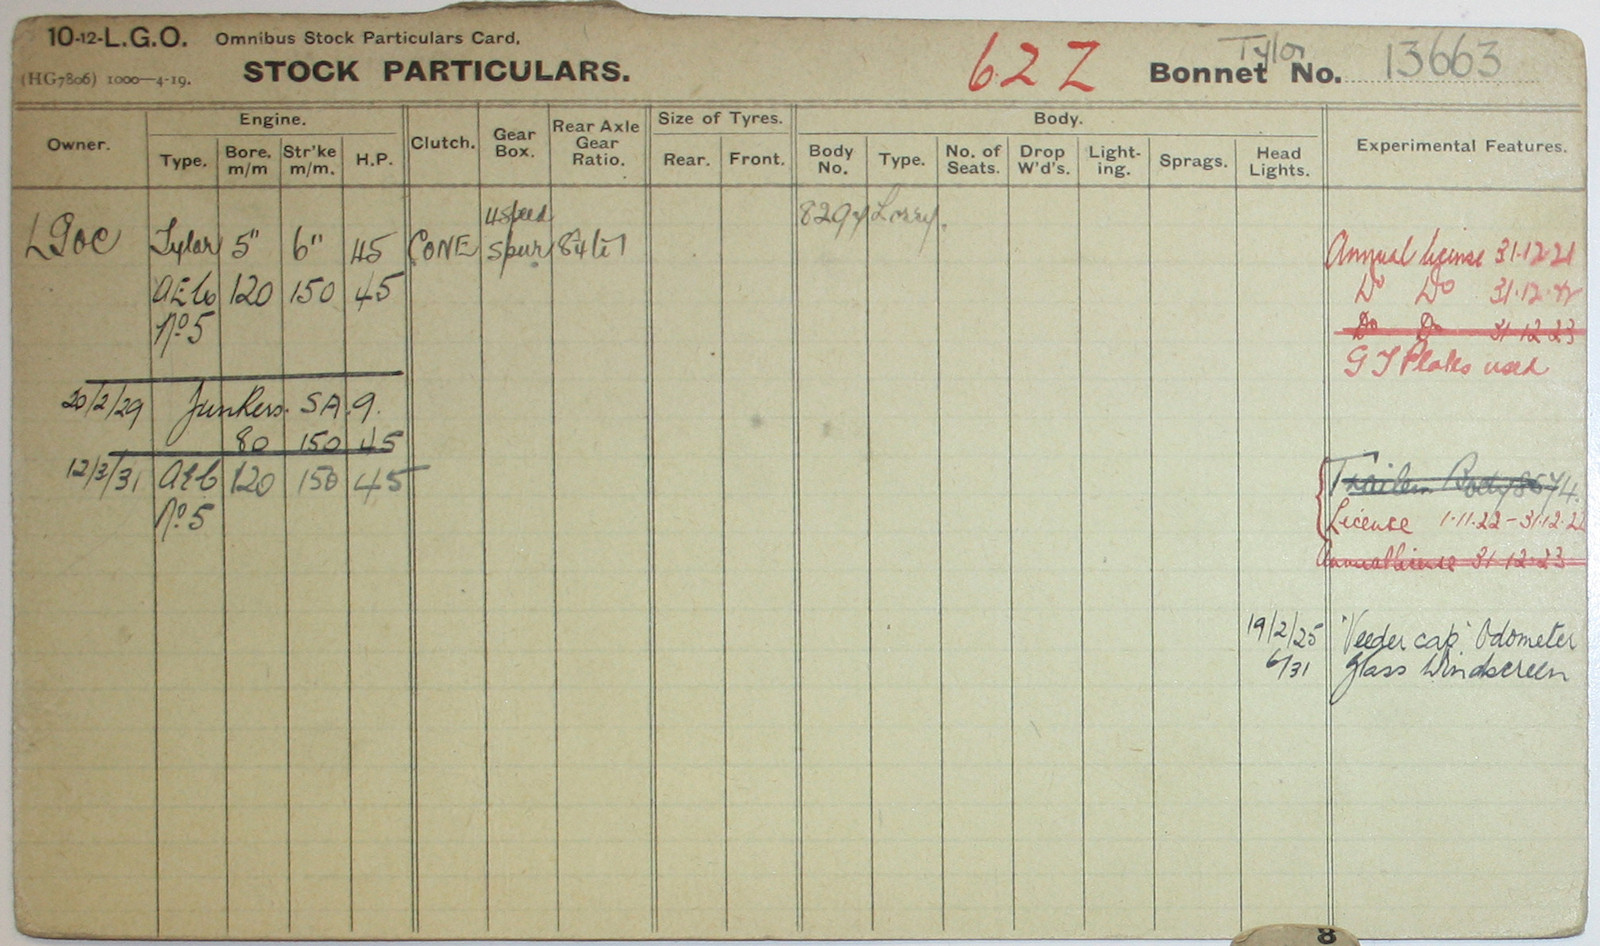 10-12-L.G.O. Omnibus Stock Particulars Card.
(HG7806) 1000—4-19.
STOCK PARTICULARS.
62 Z
Tylor
Bonnet No. 13663
Owner.
Engine.
Type. Bore. m/m Str'ke m/m. H.P.
Clutch.
Gear Box.
Rear Axle Gear Ratio.
Size of Tyres.
Rear. Front.
Body.
Body No. Type. No. of Seats. Drop W'd's. Light-ing. Sprags. Head Lights.
Experimental Features.
4 speed 8297 Lorry.
LGOC Tylor 5" 6" 45 CONE Spur Annual license 31.12.21
AEC 120 150 45 Do Do 31.12.22
No. 5 Do Do 31 12 23
G T Plates used
20/2/29 Junkers. SA.9.
80 150 45
12/3/31 AEC 120 150 45 Trailer Body
No. 5 License 1.11.22 – 31.12.22
Annual license 31 12 23
19/2/25 'Veeder cap' Odometer
6/31 Glass Windscreen
8